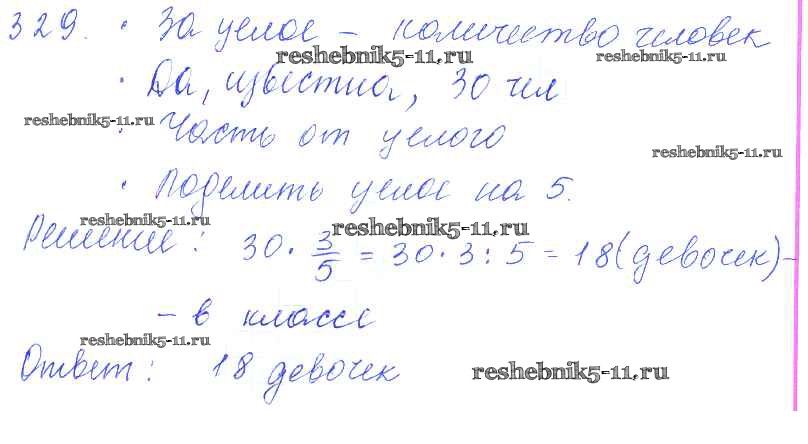 329. • За целое – количество человек
reshebnik5-11.ru reshebnik5-11.ru
• Да, известна, 30 чел
reshebnik5-11.ru
• Часть от целого
reshebnik5-11.ru
• Поделить целое на 5.
reshebnik5-11.ru reshebnik5-11.ru
Решение: 30 · 3/5 = 30 · 3 : 5 = 18 (девочек) –
– в классе
reshebnik5-11.ru
Ответ: 18 девочек
reshebnik5-11.ru